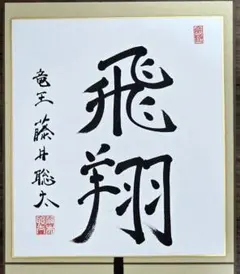 飛翔
竜王 藤井聡太